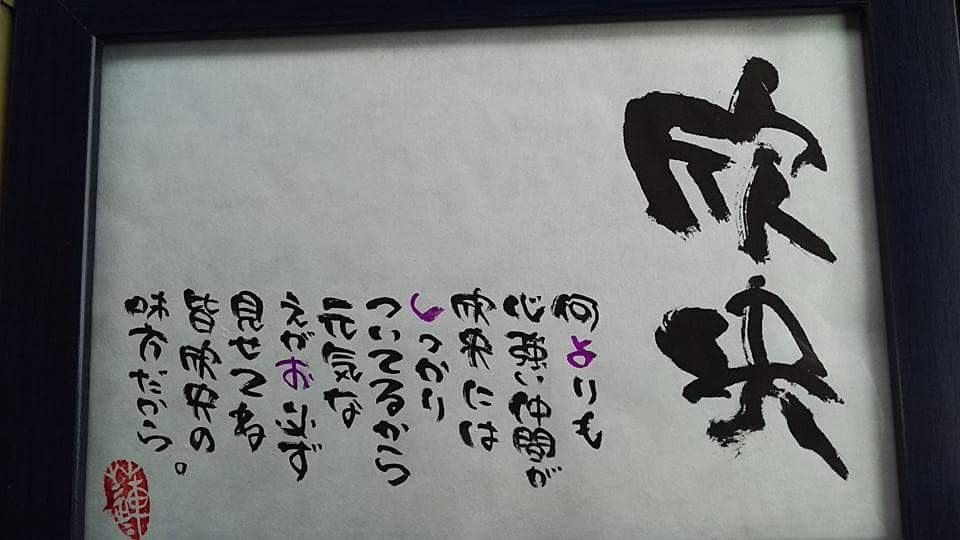 欣央
何よりも
心強い が
欣央には
しっかり
ついてるから
元気な
えがお必ず
見せてね
皆欣央の
味方だから。